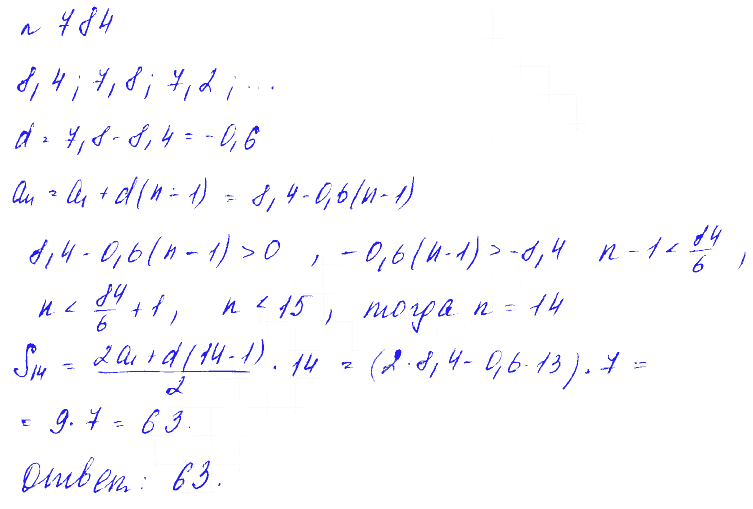 № 784
8,4; 7,8; 7,2; ...
d = 7,8 - 8,4 = -0,6
aₙ = a₁ + d(n - 1) = 8,4 - 0,6(n - 1)
8,4 - 0,6(n - 1) > 0, -0,6(n - 1) > -8,4 n - 1 < 84/6,
n < 84/6 + 1, n < 15, тогда n = 14
S₁₄ = (2a₁ + d(14 - 1))/2 · 14 = (2 · 8,4 - 0,6 · 13) · 7 =
= 9 · 7 = 63.
Ответ: 63.